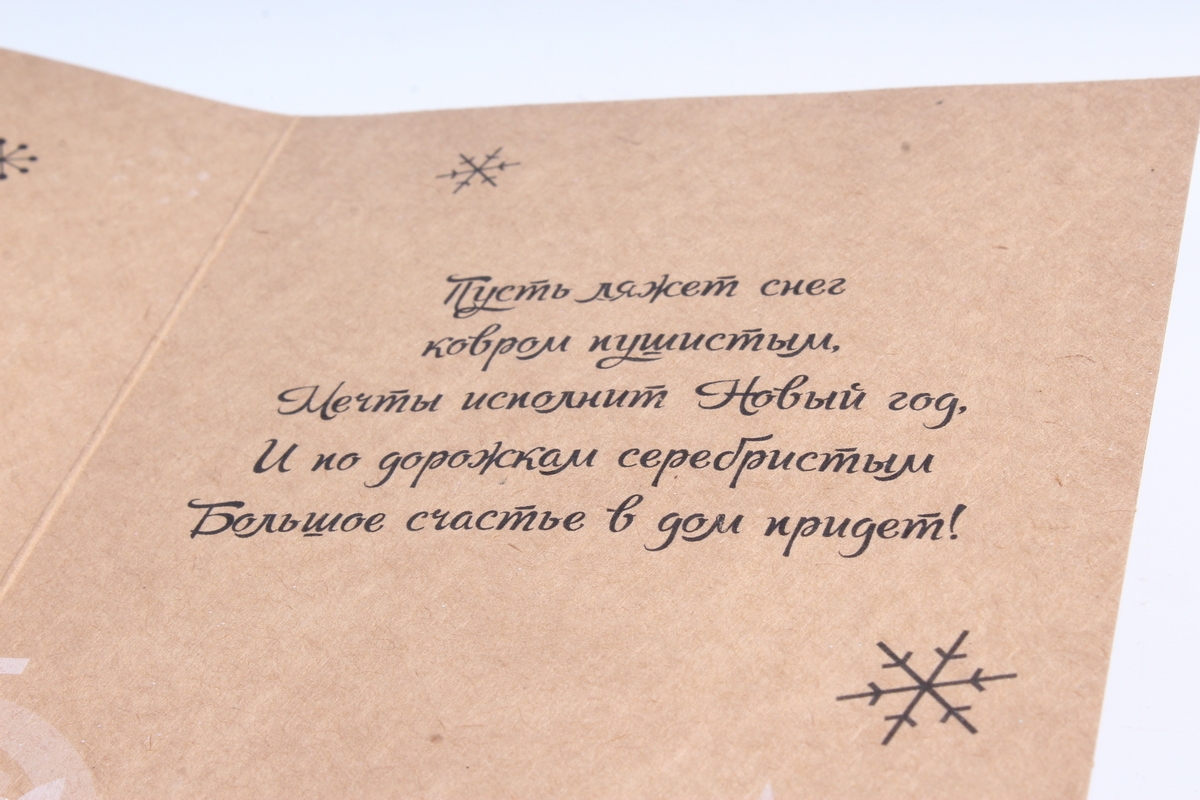 Пусть ляжет снег
ковром пушистым,
Мечты исполнит Новый год,
И по дорожкам серебристым
Большое счастье в дом придет!